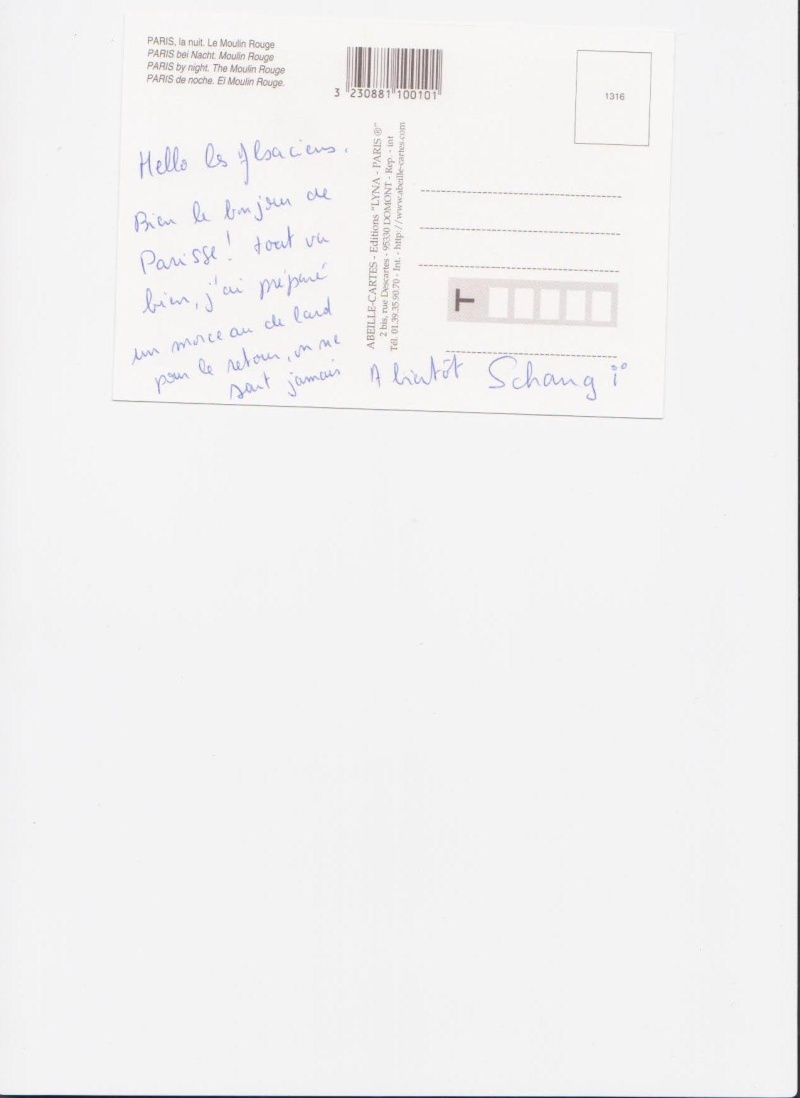 PARIS, la nuit. Le Moulin Rouge
PARIS bei Nacht. Moulin Rouge
PARIS by night. The Moulin Rouge
PARIS de noche. El Moulin Rouge.
3 230881 100101
1316
Hello les Alsaciens.
Bien le bonjour de
Parisse! tout va
bien, j'ai préparé
un morceau de lard
pour le retour, on ne
sait jamais
A bientôt Schangi
ABEILLE-CARTES - Editions "LYNA - PARIS ®"
2 bis, rue Descartes - 95330 DOMONT - Rep. - int
Tél. 01.39.35.90.70 - Int. - http://www.abeille-cartes.com
T